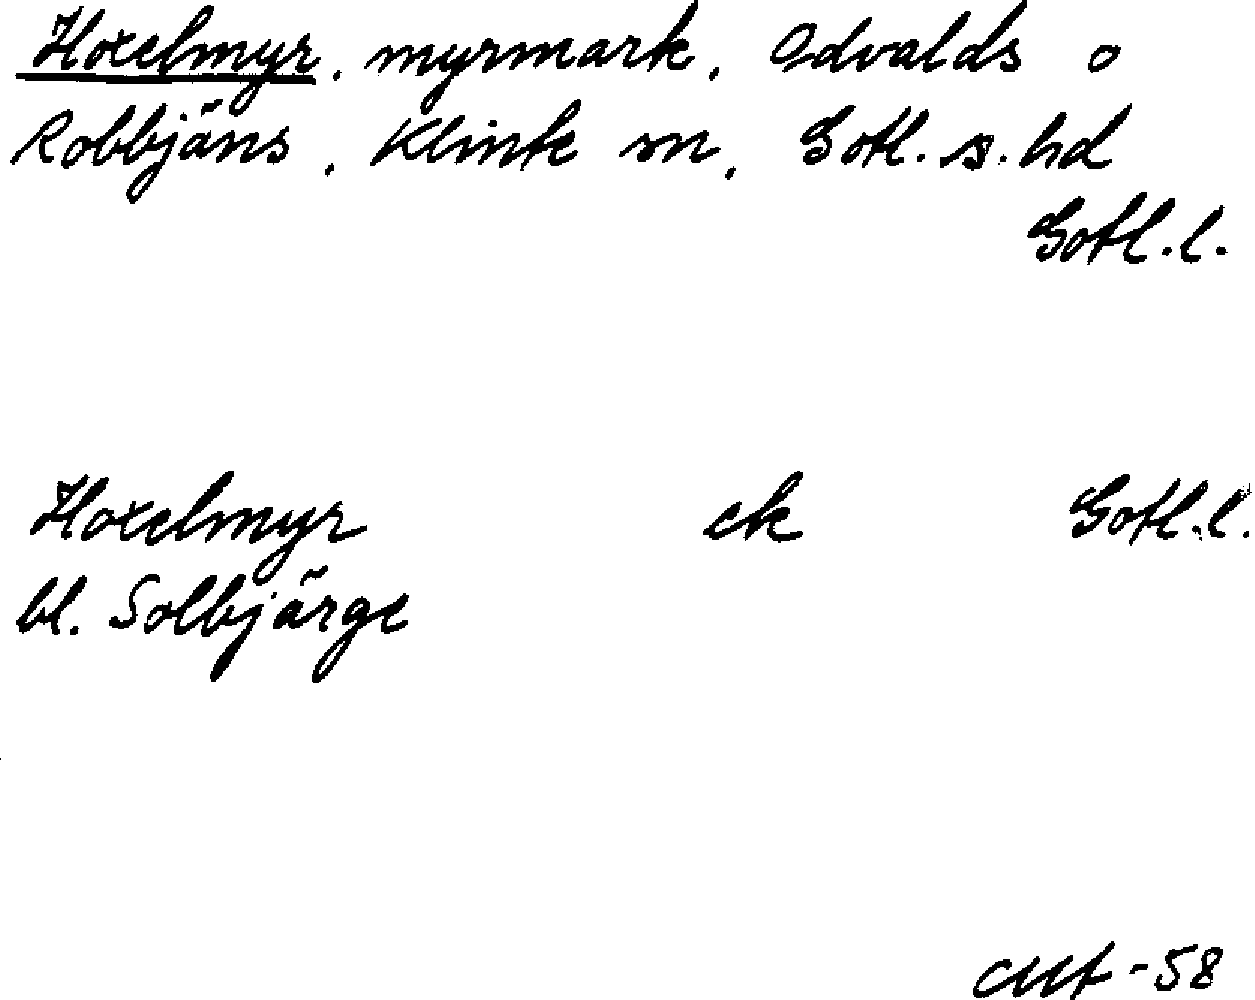 Hoxelmyr, myrmark, Odvalds o
Robbjäns, Klinte sn, Gotl. s. hd
Gotl.l.
Hoxelmyr ek Gotl.l.
bl. Solbjärge
-58